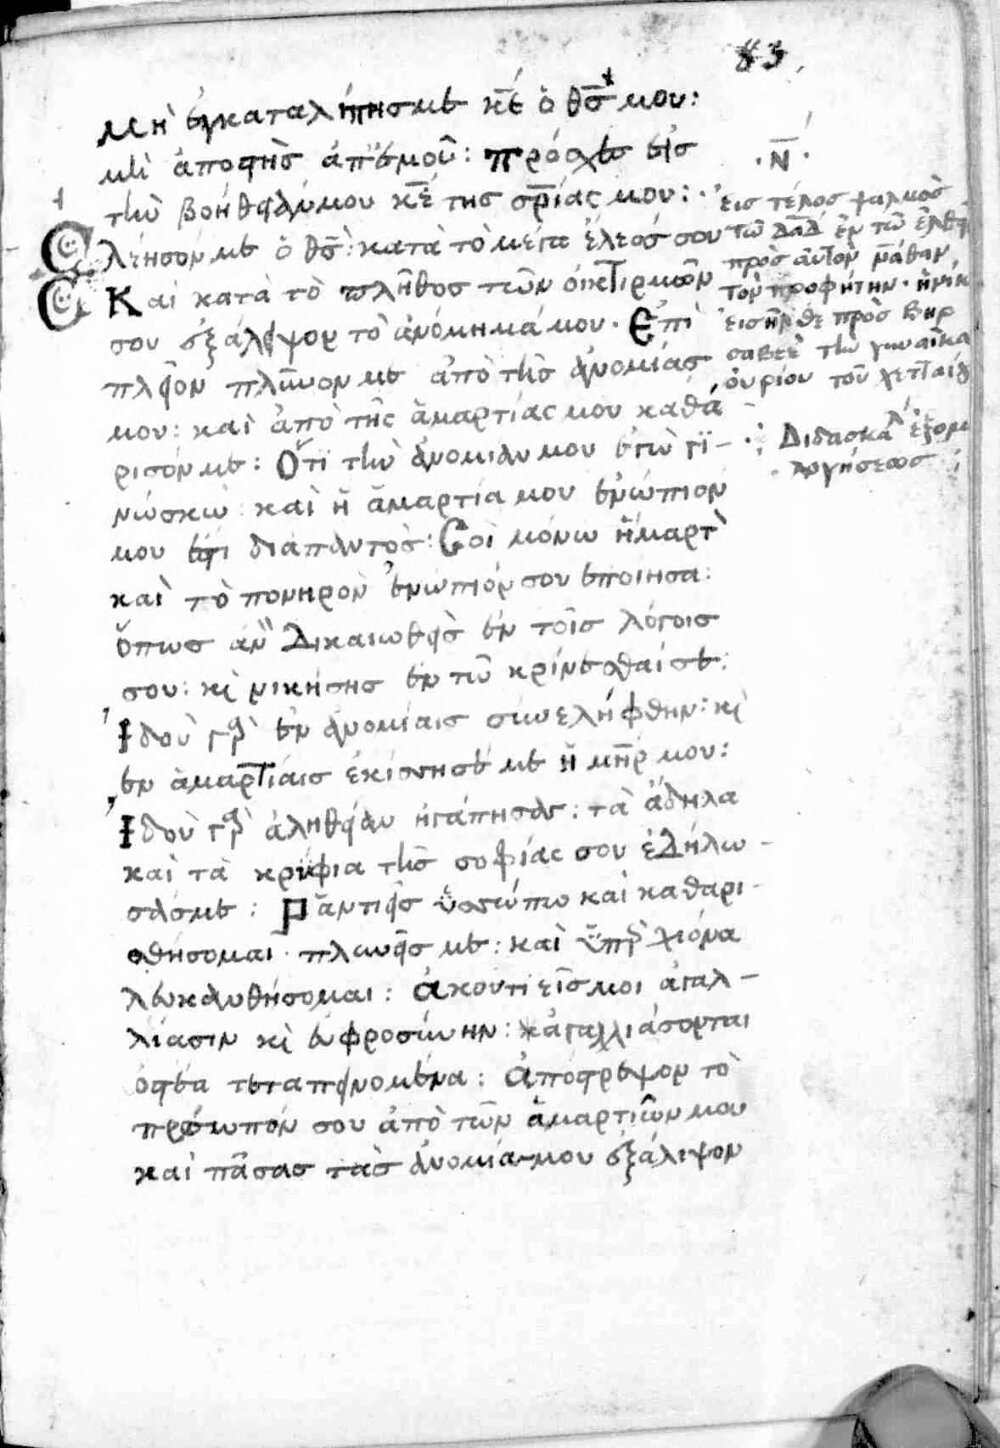 83
μὴ ἐγκαταλήπησμε κ̅ε̅ ὁ θ̅σ̅ μου:
μὴ ἀποστῆς ἀπ'ἐμοῦ: πρόσχεσ εἰσ
τὴν βοήθειάνμου κ̅ε̅ της σ̅ρ̅ίας μου:
Ελέησον με ὁ θ̅σ̅: κατὰ τὸ μέγα ἔλεός σου
Και κατὰ τὸ πλῆθοσ τῶν οἰκτιρμῶν
σου ἐξάλειψον τὸ ἀνόμημά μου. Επὶ
πλεῖον πλῦνον με ἀπὸ τῆσ ἀνομίασ
μου: καὶ ἀπὸ τῆς ἁμαρτίας μου καθά
ρισόν με: Οτι τὴν ἀνομίαν μου ἐγὼ γι-
νώσκω: καὶ ἡ ἁμαρτία μου ἐνώπιον
μου ἐστι διαπαντὸσ: Σοὶ μόνω ἥμαρτ
καὶ τὸ πονηρὸν ἐνώπιόν σου ἐποιησα:
ὅπωσ ἂν Δικαιωθῆσ ἐν τοῖσ λόγοισ
σου: κὶ νικήσησ ἐν τῶ κρίνεσθαί σε:
Ιδοὺ γὰρ ἐν ἀνομίαισ συνελήφθην: κὶ
ἐν ἁμαρτίαισ ἐκίσσησέ με ἡ μ̅η̅ρ̅ μου:
Ιδοὺ γὰρ ἀλήθειαν ἠγάπησασ: τὰ ἄδηλα
καὶ τὰ κρύφια τῆσ σοφίας σου ἐδήλω-
σάσμε: Ραντιεῖσ ὑσσώπω καὶ καθαρι-
σθήσομαι. πλυνεῖσ με: καὶ ὑπὲρ χιόνα
λευκανθήσομαι: Ακουτιεῖσ μοι ἀγαλ-
λίασιν κὶ εὐφροσύνην: κ ἀγαλλιάσονται
ὀστέα τεταπεινομένα: Απόστρεψον τὸ
πρόσωπόν σου ἀπὸ τῶν ἁμαρτιῶν μου
καὶ πᾶσασ τὰσ ἀνομία μου ἐξάλιψον
·Ν̅·
εἰσ τέλοσ ψαλμὸσ
τῶ δ̅α̅δ̅ ἐν τῶ ἐλθεῖ
πρὸσ αὐτὸν νάθαν
τὸν προφήτην· ἡνικ
εἰσῆλθε πρὸσ Βηρ
σαβεὲ τὴν γυναῖκα
οὐρίου τοῦ χετταίο
Διδασκαλ ἐξομο
λογήσεωσ